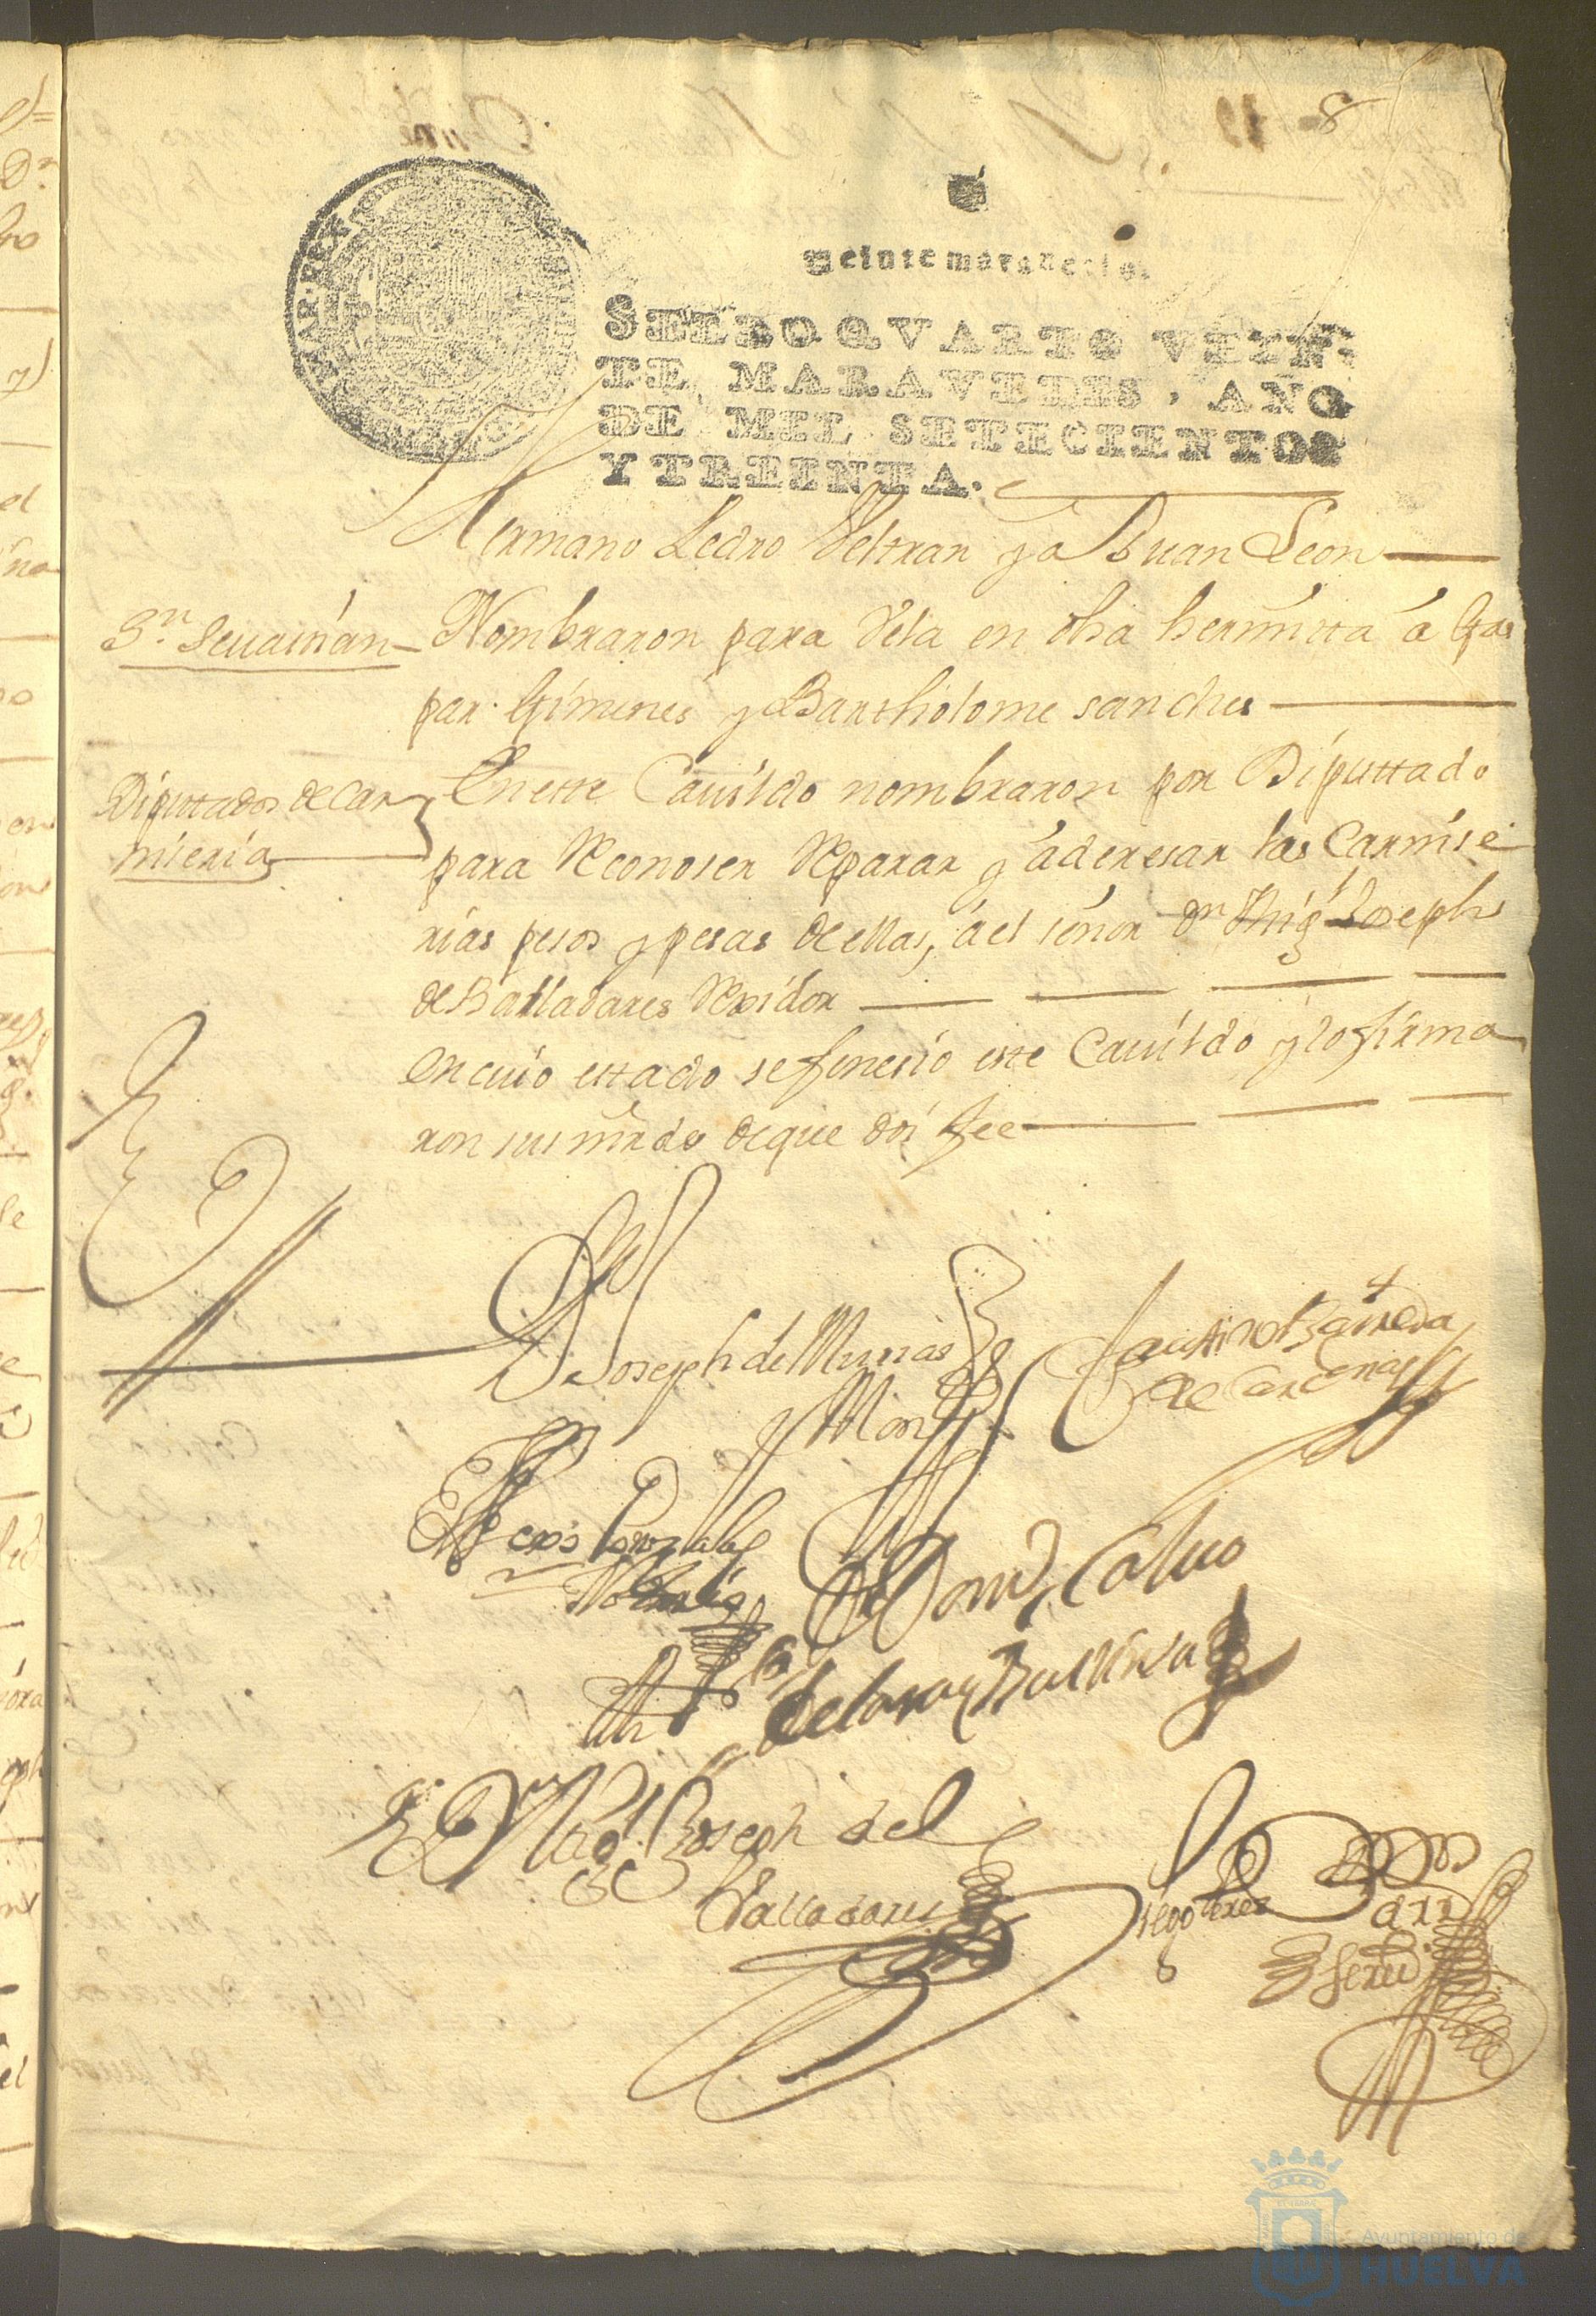 8
Veinte maravedis
SELLO QVARTO VEIN-
TE MARAVEDIS, AÑO
DE MIL SETECIENTOS
Y TREINTA.
Hermano Pedro Beltran y a Juan Leon
Sn. Sevastian
Nombraron para dela en dha hermitta á Gas
par Gimenes y Bartholome sanches
Diputtados de Car
niería
En este Cavildo nombraron por Diputtado
para Reconoser Reparar y áderesar las Carnise
rias pesos y pesas de ellas, á el señor Dn Migl Joseph
de Balladares Rexidor
en cuio estado se feneció este Cavildo y lo firma
ron sus mrds de que doi fee
Dn Joseph de
Faustino Barreda
de Cardenas
Gonzales
Calvo
Dn Migl Joseph del
Valladares
Diego Perez
Ayuntamiento de
HUELVA